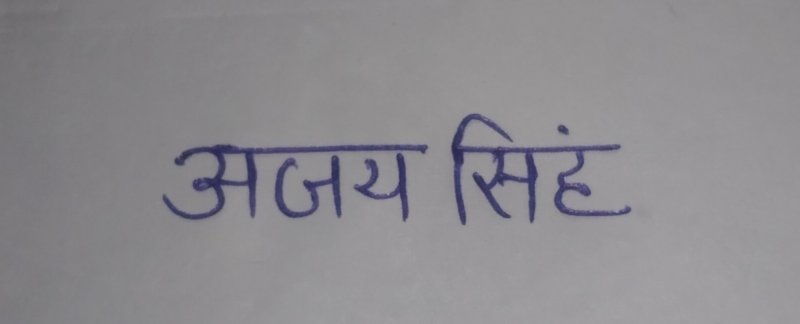 अजय सिहं